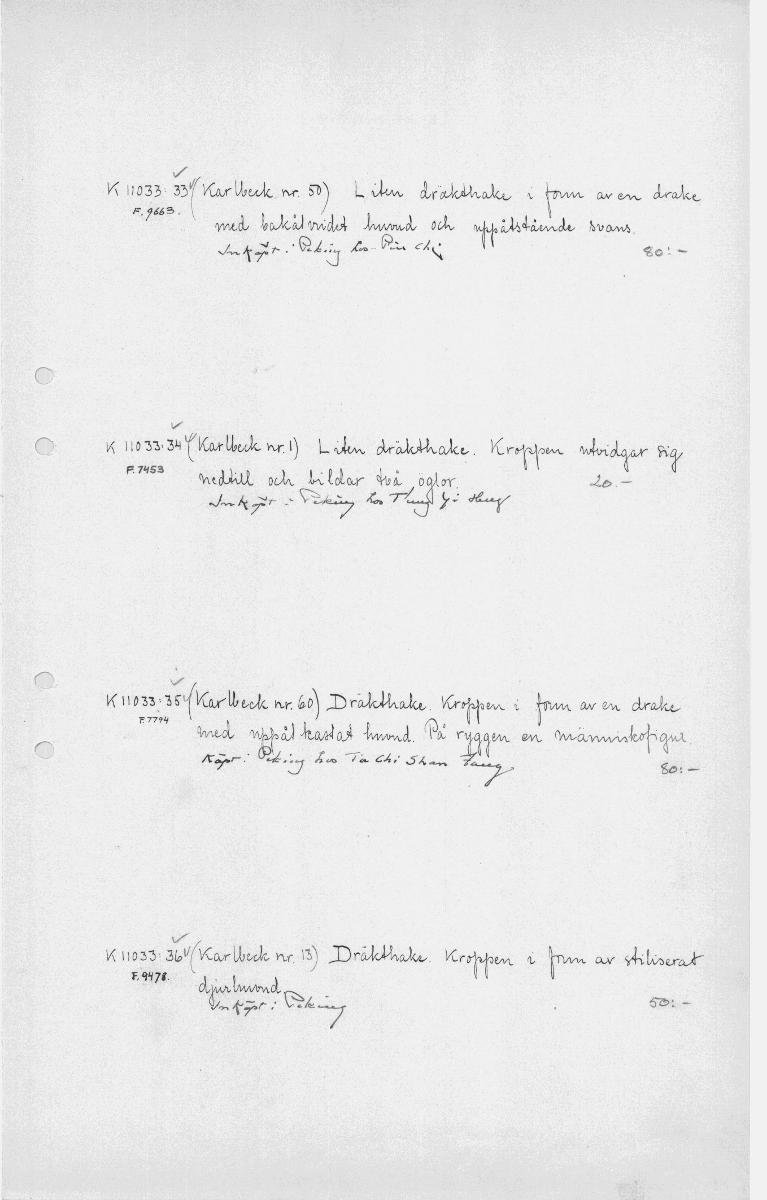 K 11033:33 (Karlbeck nr. 50) Liten dräkthake i form av en drake
F. 9663.
med bakåtvridet huvud och uppåtstående svans.
Inköpt i Peking hos Pin Chi
80:-
K 11033:34 (Karlbeck nr. 1) Liten dräkthake. Kroppen utvidgar sig
F. 7453
nedtill och bildar två öglor.
20.-
Inköpt i Peking hos Tung Yi Heng
K 11033:35 (Karlbeck nr. 60) Dräkthake. Kroppen i form av en drake
F. 7794
med uppåtkastat huvud. På ryggen en människofigur
Köpt i Peking hos Ta Chi Shan Tang
80:-
K 11033:36 (Karlbeck nr. 13) Dräkthake. Kroppen i form av stiliserat
F. 9478.
djurhuvud.
Inköpt i Peking
50:-